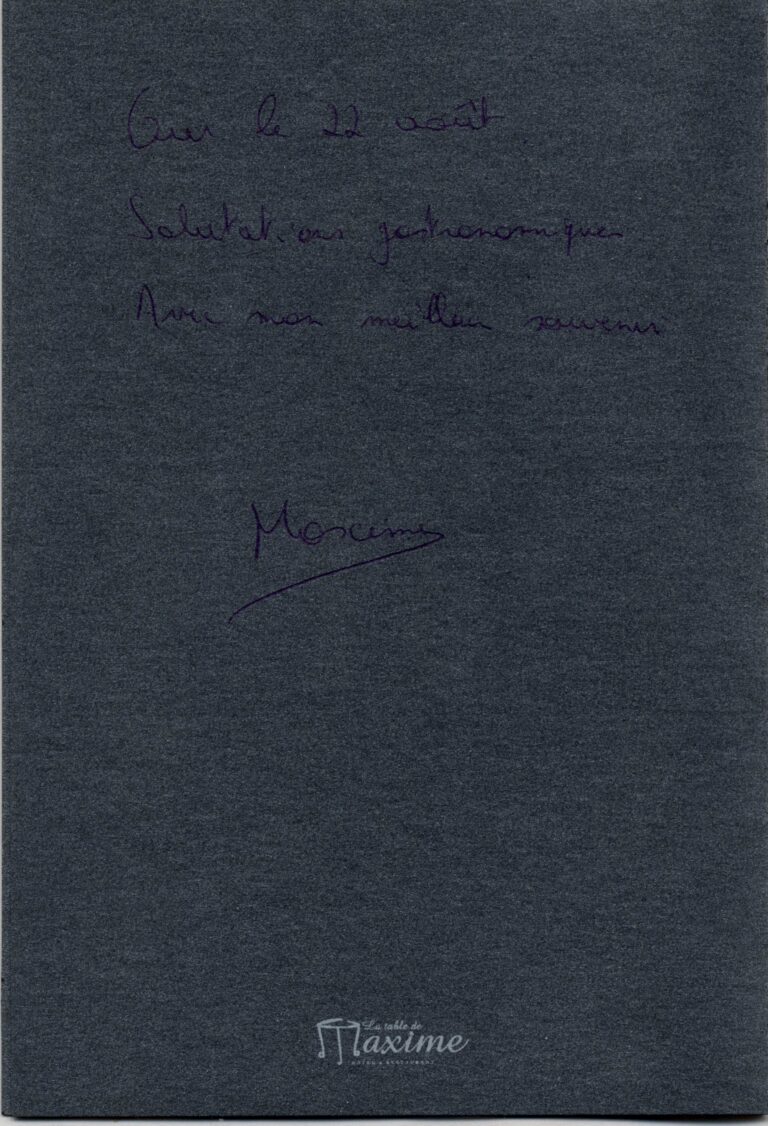 Our le 22 août
Salutations gastronomiques
Avec mon meilleur souvenir
Maxime
La table de
Maxime
HOTEL & RESTAURANT